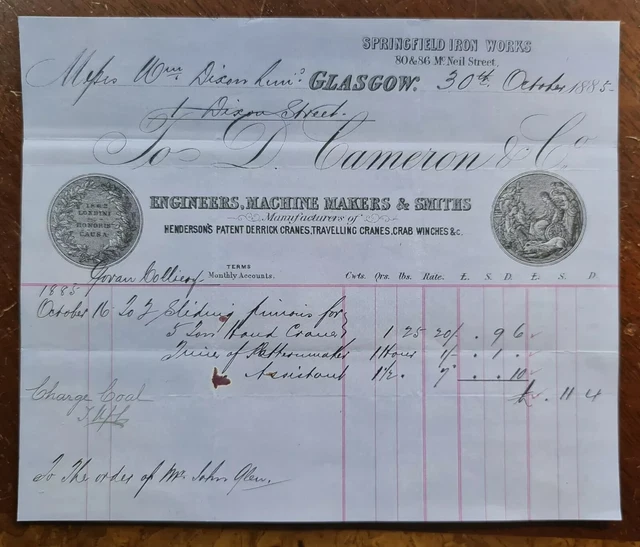 SPRINGFIELD IRON WORKS
80 & 86 Mc.Neil Street,
Messrs Wm Dixon Limd GLASGOW. 30th October 1885
1 Dixon Street.
To D. Cameron & Co
1862
LONDINI
HONORIS
CAUSA
ENGINEERS, MACHINE MAKERS & SMITHS
Manufacturers of
HENDERSON'S PATENT DERRICK CRANES, TRAVELLING CRANES, CRAB WINCHES &c.
Govan Colliery TERMS
Monthly Accounts. Cwts. Qrs. lbs. Rate. £. S. D. £. S. D.
1885
October 16 To Sliding pinions for
5 Ton Hand Crane 1 25 20/ . 9 6
Time of Patternmaker 1 Hour 1/- . 1 .
Assistant 1½ 7d . . 10
£ . 11 4
Charge Coal
To the order of Mr John Glen.